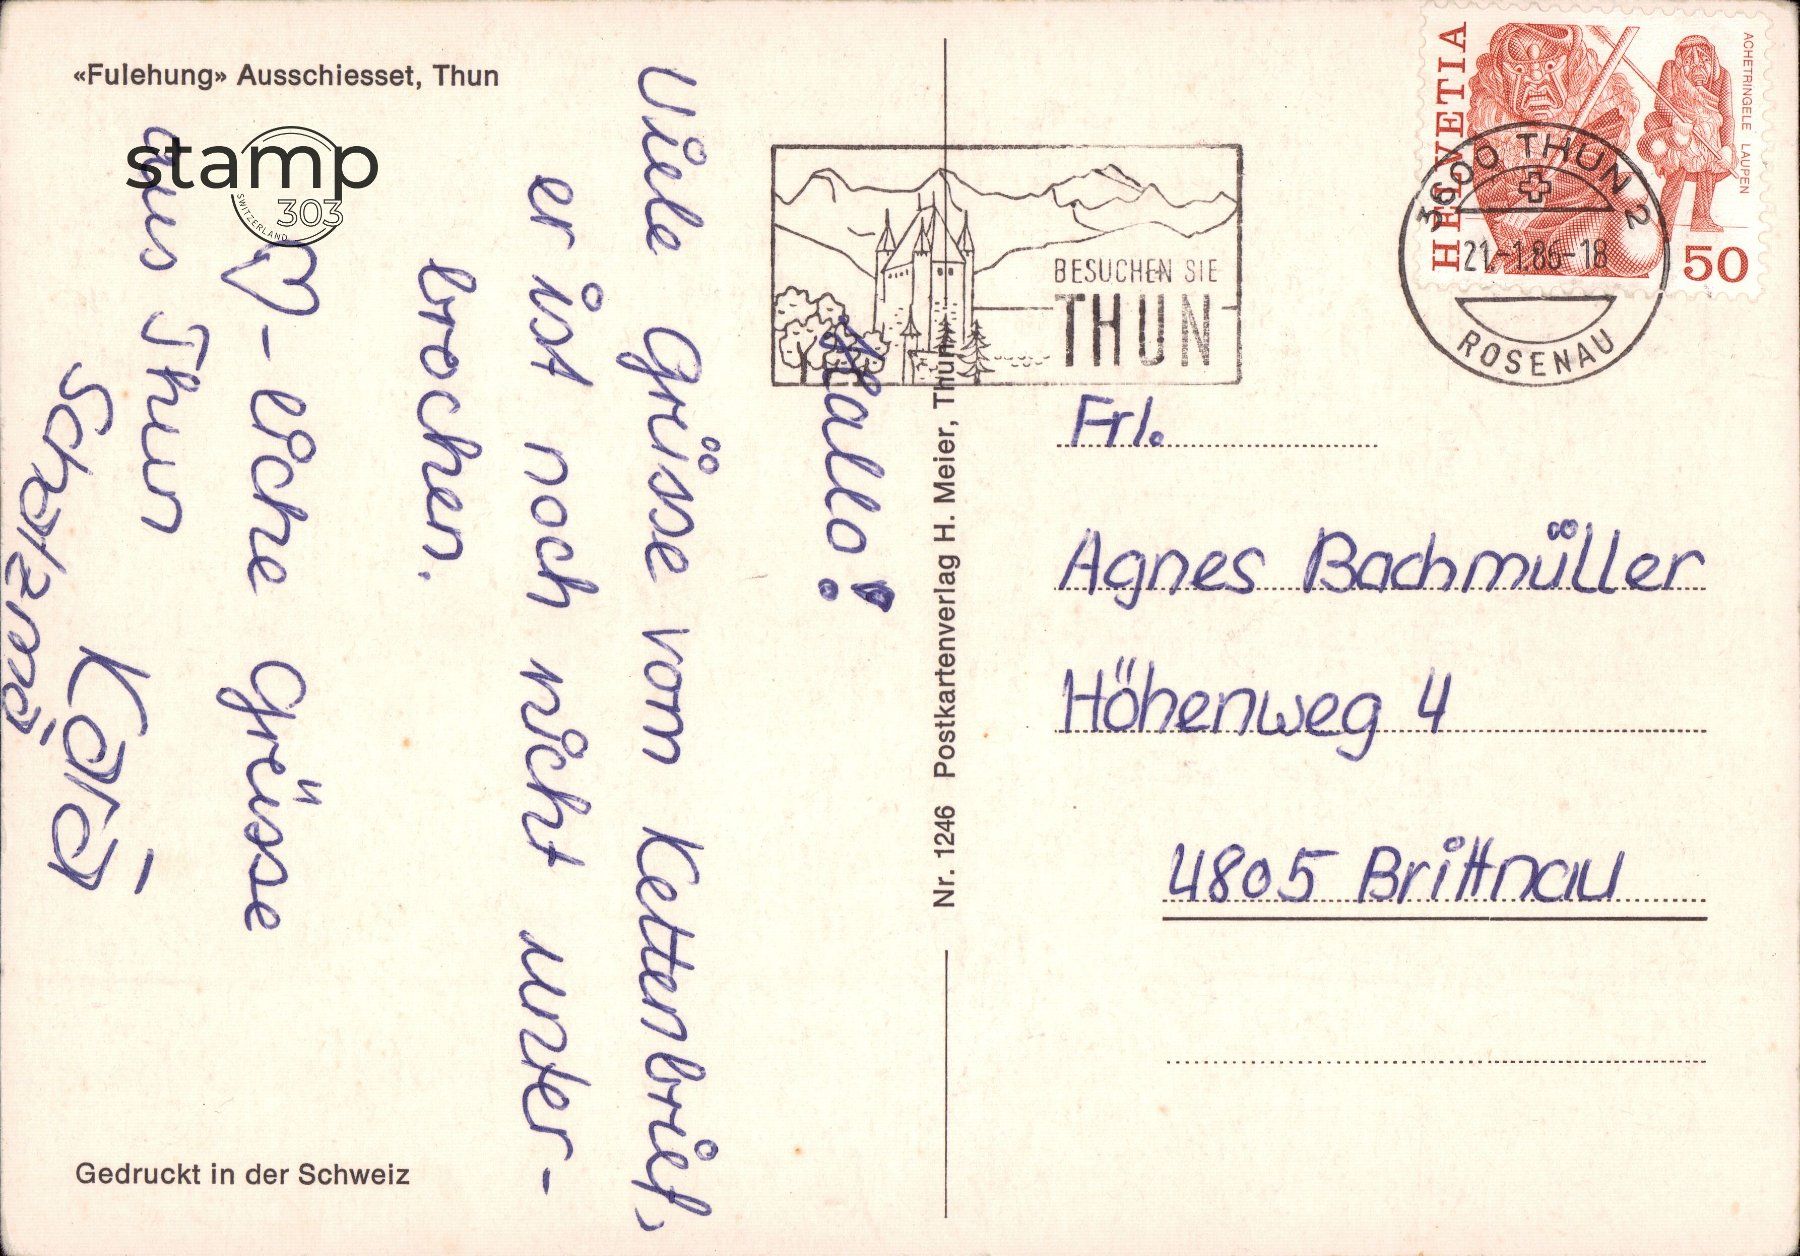 «Fulehung» Ausschiesset, Thun
stamp
303
SWITZERLAND
Hallo!
Viele Grüsse vom Kettenbrief,
er ist noch nicht unter-
brochen.
♡-liche Grüsse
aus Thun
Karin
Gedruckt in der Schweiz
Nr. 1246 Postkartenverlag H. Meier, Thun
BESUCHEN SIE
THUN
HELVETIA
ACHETRINGELE LAUPEN
50
3600 THUN 2
21.-1.86-18
ROSENAU
Frl.
Agnes Bachmüller
Höhenweg 4
4805 Brittnau